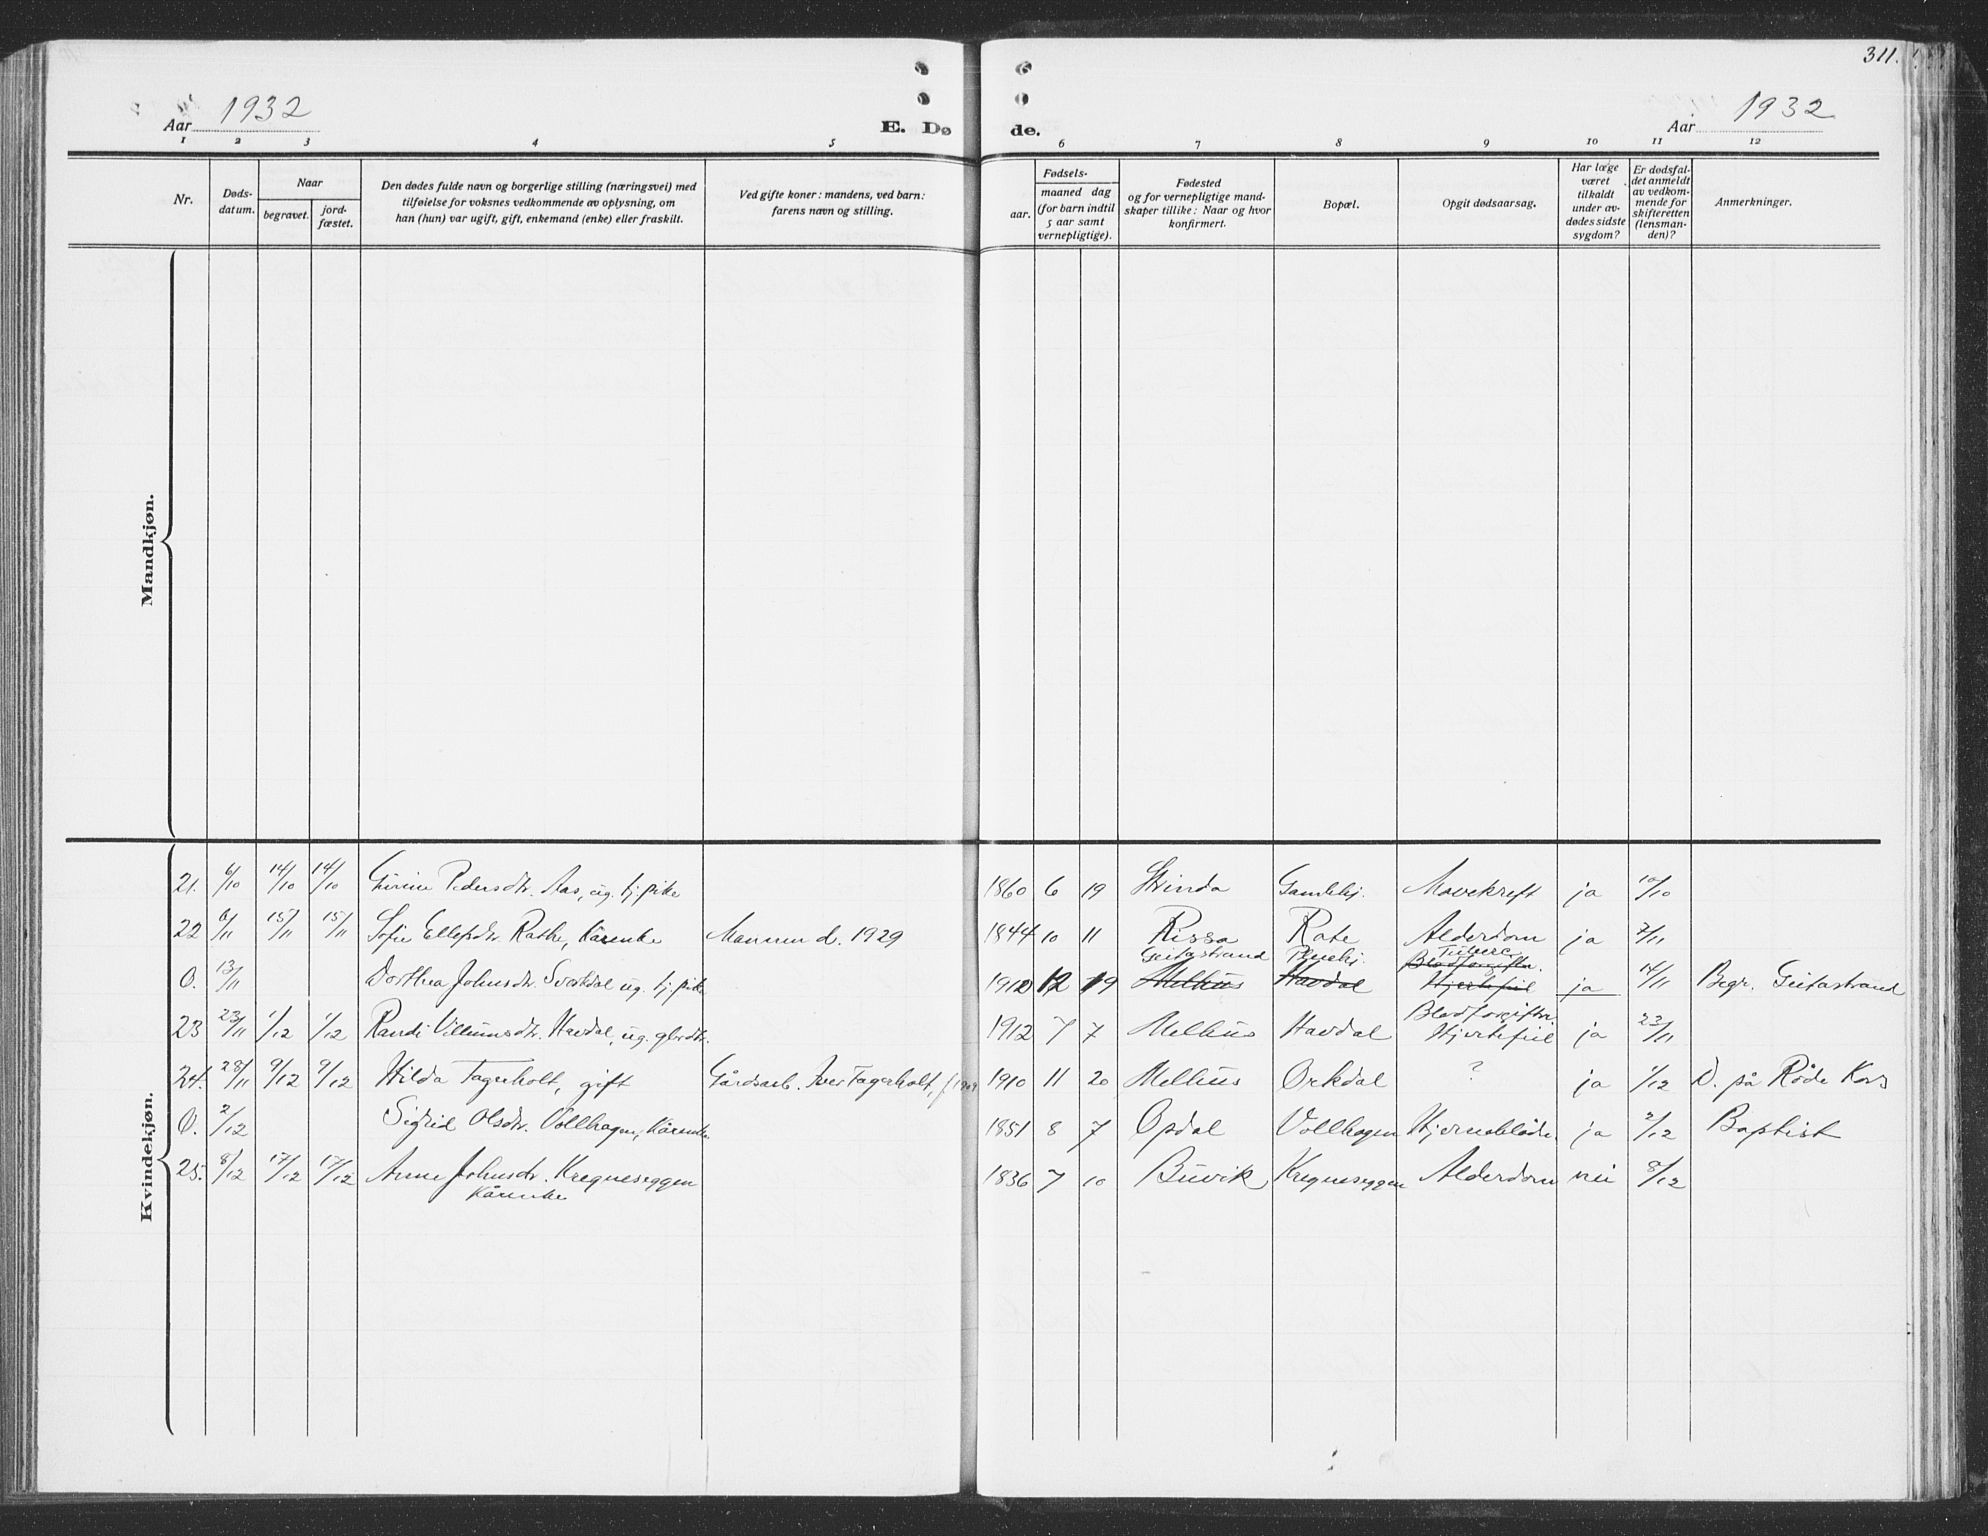 311.
Aar 1932
E. Dø de.
Aar 1932
1 2 3 4 5 6 7 8 9 10 11 12
Nr.
Døds-
datum.
Naar
begravet.
jord-
fæstet.
Den dødes fulde navn og borgerlige stilling (næringsvei) med
tilføielse for voksnes vedkommende av oplysning, om
han (hun) var ugift, gift, enkemand (enke) eller fraskilt.
Ved gifte koner: mandens, ved barn:
farens navn og stilling.
Fødsels-
aar.
maaned dag
(for barn indtil
5 aar samt
vernepligtige).
Fødested
og for vernepligtige mand-
skaper tillike: Naar og hvor
konfirmert.
Bopæl.
Opgit dødsaarsag.
Har læge
været
tilkaldt
under av-
dødes sidste
sygdom?
Er dødsfal-
det anmeldt
av vedkom-
mende for
skifteretten
(lensman-
den)?
Anmerkninger.
Mandkjøn.
Kvindekjøn.
21. 6/10 14/10 14/10 Gurine Pedersdtr. Aas, ug. hj. pike 1860 6 19 Strinda Gamlehj. Mavekreft ja 10/10
22 6/11 15/11 15/11 Sofie Ellefsdtr. Rathe, Kårenke Mannen d. 1929 1844 10 11 Rissa Rate Alderdom ja 7/11
Geitastrand Pleiehj. Tuberc.
Blodforgiftn.
0. 13/11 Dorthea Johnsdtr. Svorkdal ug. hj. pike 1912 12 19 Melhus Havdal Hjertefeil ja 14/11 Begr. Geitastrand
Blodforgiftn.
23 23/11 1/12 1/12 Randi Villumsdtr. Havdal, ug. grdtr. 1912 7 7 Melhus Havdal Hjertefeil ja 23/11
24. 28/11 9/12 9/12 Hilda Fagerholt, gift Gårdsarb. Iver Fagerholt, f. 1909 1910 11 20 Melhus Orkdal ? ja 1/12 D. på Røde Kors
0. 2/12 Sigrid Olsdtr. Vollhagen, Kårenke 1851 8 7 Opdal Vollhagen Hjerneblødn. ja 2/12 Baptist
25. 8/12 17/12 17/12 Anne Johnsdtr. Kregneseggen 1836 7 10 Buvik Kregneseggen Alderdom nei 8/12
Kårenke